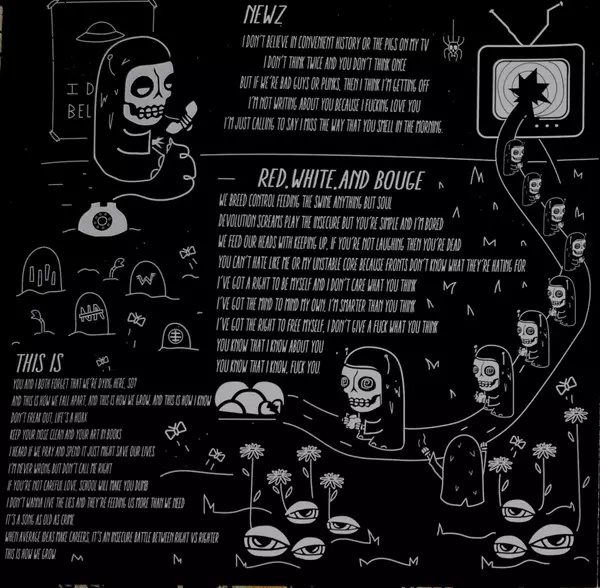 NEWZ
I DON'T BELIEVE IN CONVENIENT HISTORY OR THE PIGS ON MY TV
I DON'T THINK TWICE AND YOU DON'T THINK ONCE
BUT IF WE'RE BAD GUYS OR PUNKS, THEN I THINK I'M GETTING OFF
I'M NOT WRITING ABOUT YOU BECAUSE I FUCKING LOVE YOU
I'M JUST CALLING TO SAY I MISS THE WAY THAT YOU SMELL IN THE MORNING.
I D
BEL
RED, WHITE, AND BOUGE
WE BREED CONTROL FEEDING THE SWINE ANYTHING BUT SOUL
DEVOLUTION SCREAMS PLAY THE INSECURE BUT YOU'RE SIMPLE AND I'M BORED
WE FEED OUR HEADS WITH KEEPING UP, IF YOU'RE NOT LAUGHING THEN YOU'RE DEAD
YOU CAN'T HATE LIKE ME OR MY UNSTABLE CORE BECAUSE FRONTS DON'T KNOW WHAT THEY'RE HATING FOR
I'VE GOT A RIGHT TO BE MYSELF AND I DON'T CARE WHAT YOU THINK
I'VE GOT THE MIND TO MIND MY OWN, I'M SMARTER THAN YOU THINK
I'VE GOT THE RIGHT TO FREE MYSELF, I DON'T GIVE A FUCK WHAT YOU THINK
YOU KNOW THAT I KNOW ABOUT YOU
YOU KNOW THAT I KNOW, FUCK YOU.
W
THIS IS
YOU AND I BOTH FORGET THAT WE'RE DYING HERE, SO?
AND THIS IS HOW WE FALL APART, AND THIS IS HOW WE GROW, AND THIS IS HOW I KNOW
DON'T FREAK OUT, LIFE'S A HOAX
KEEP YOUR NOSE CLEAN AND YOUR ART IN BOOKS
I HEARD IF WE PRAY AND SPEND IT JUST MIGHT SAVE OUR LIVES
I'M NEVER WRONG BUT DON'T CALL ME RIGHT
IF YOU'RE NOT CAREFUL LOVE, SCHOOL WILL MAKE YOU DUMB
I DON'T WANNA LIVE THE LIES AND THEY'RE FEEDING US MORE THAN WE NEED
IT'S A SONG AS OLD AS CRIME
WHEN AVERAGE IDEAS MAKE CAREERS, IT'S AN INSECURE BATTLE BETWEEN RIGHT VS RIGHTER
THIS IS HOW WE GROW